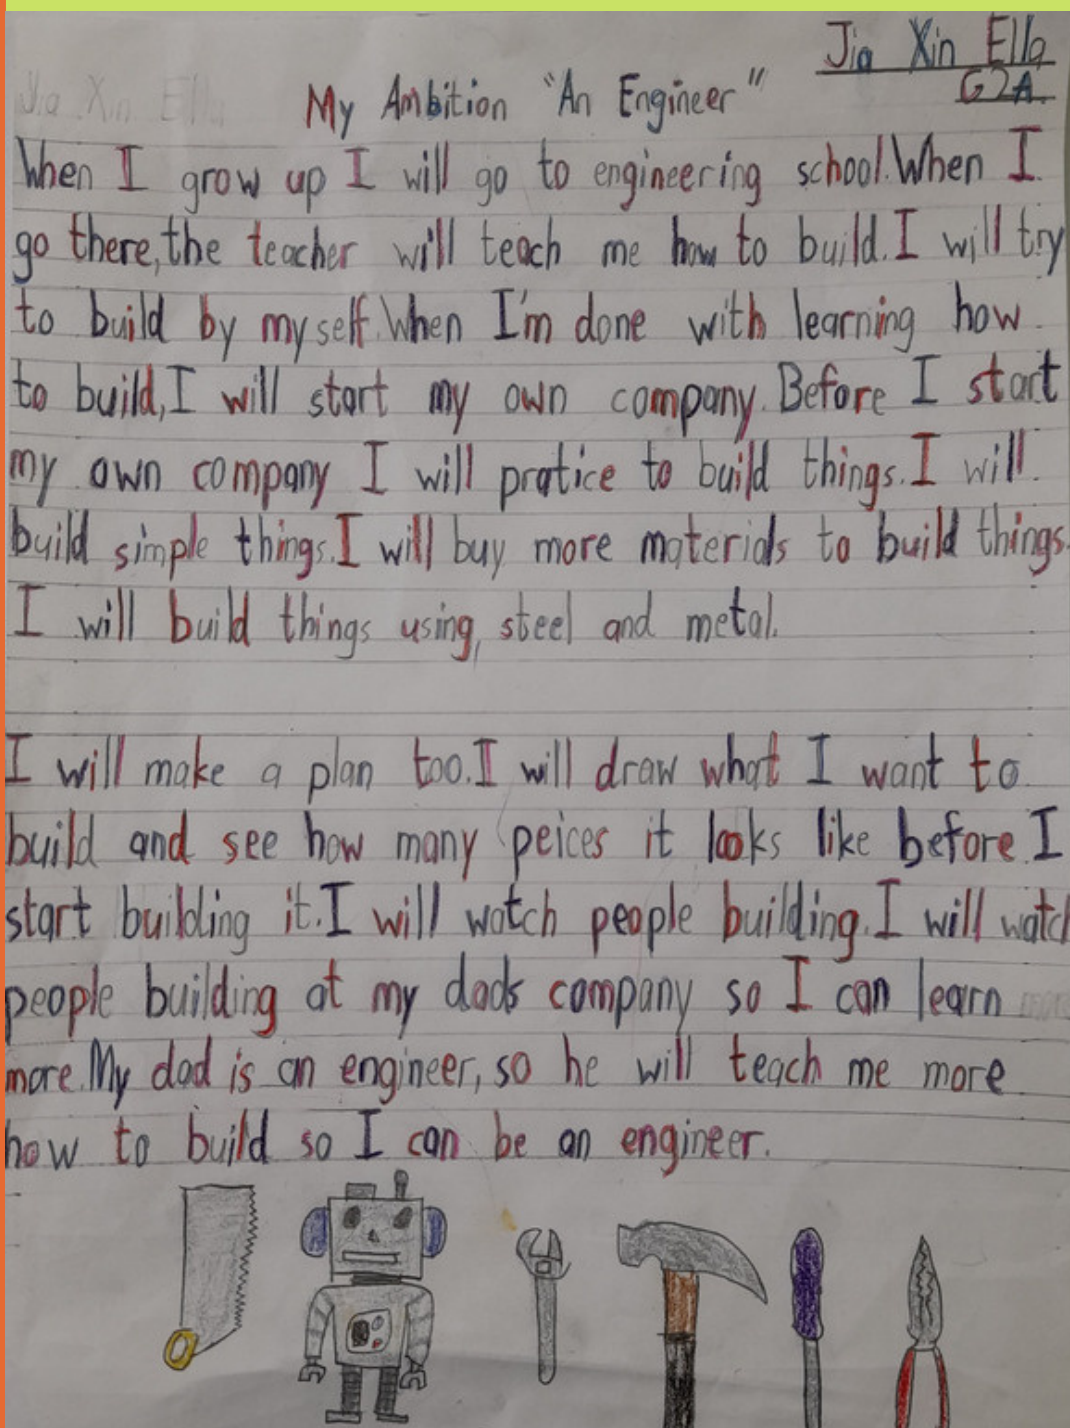 Jia Xin Ella
G2A
My Ambition "An Engineer"
Jia Xin Ella
When I grow up I will go to engineering school.When I
go there,the teacher will teach me how to build.I will try
to build by myself.When I'm done with learning how
to build,I will start my own company.Before I start
my own company I will pratice to build things.I will
build simple things.I will buy more materials to build things.
I will build things using, steel and metal.
I will make a plan too.I will draw what I want to
build and see how many peices it looks like before I
start building it.I will watch people building.I will watch
people building at my dads company so I can learn
more.My dad is an engineer,so he will teach me more
how to build so I can be an engineer.